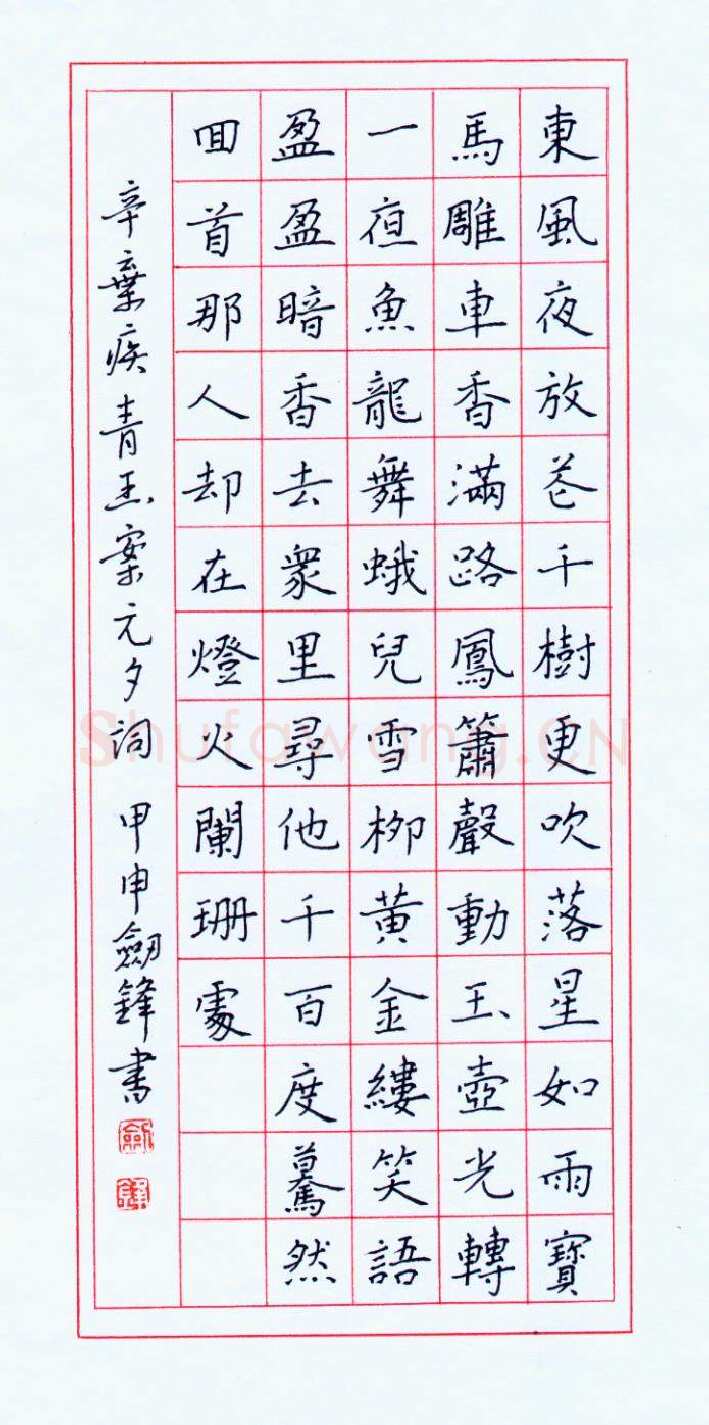 東風夜放花千樹更吹落星如雨寶
馬雕車香滿路鳳簫聲動玉壺光轉
一夜魚龍舞蛾兒雪柳黃金縷笑語
盈盈暗香去衆里尋他千百度驀然
回首那人却在燈火闌珊處
辛棄疾青玉案元夕詞 甲申劍鋒書
劍
鋒
Shufawang.CN